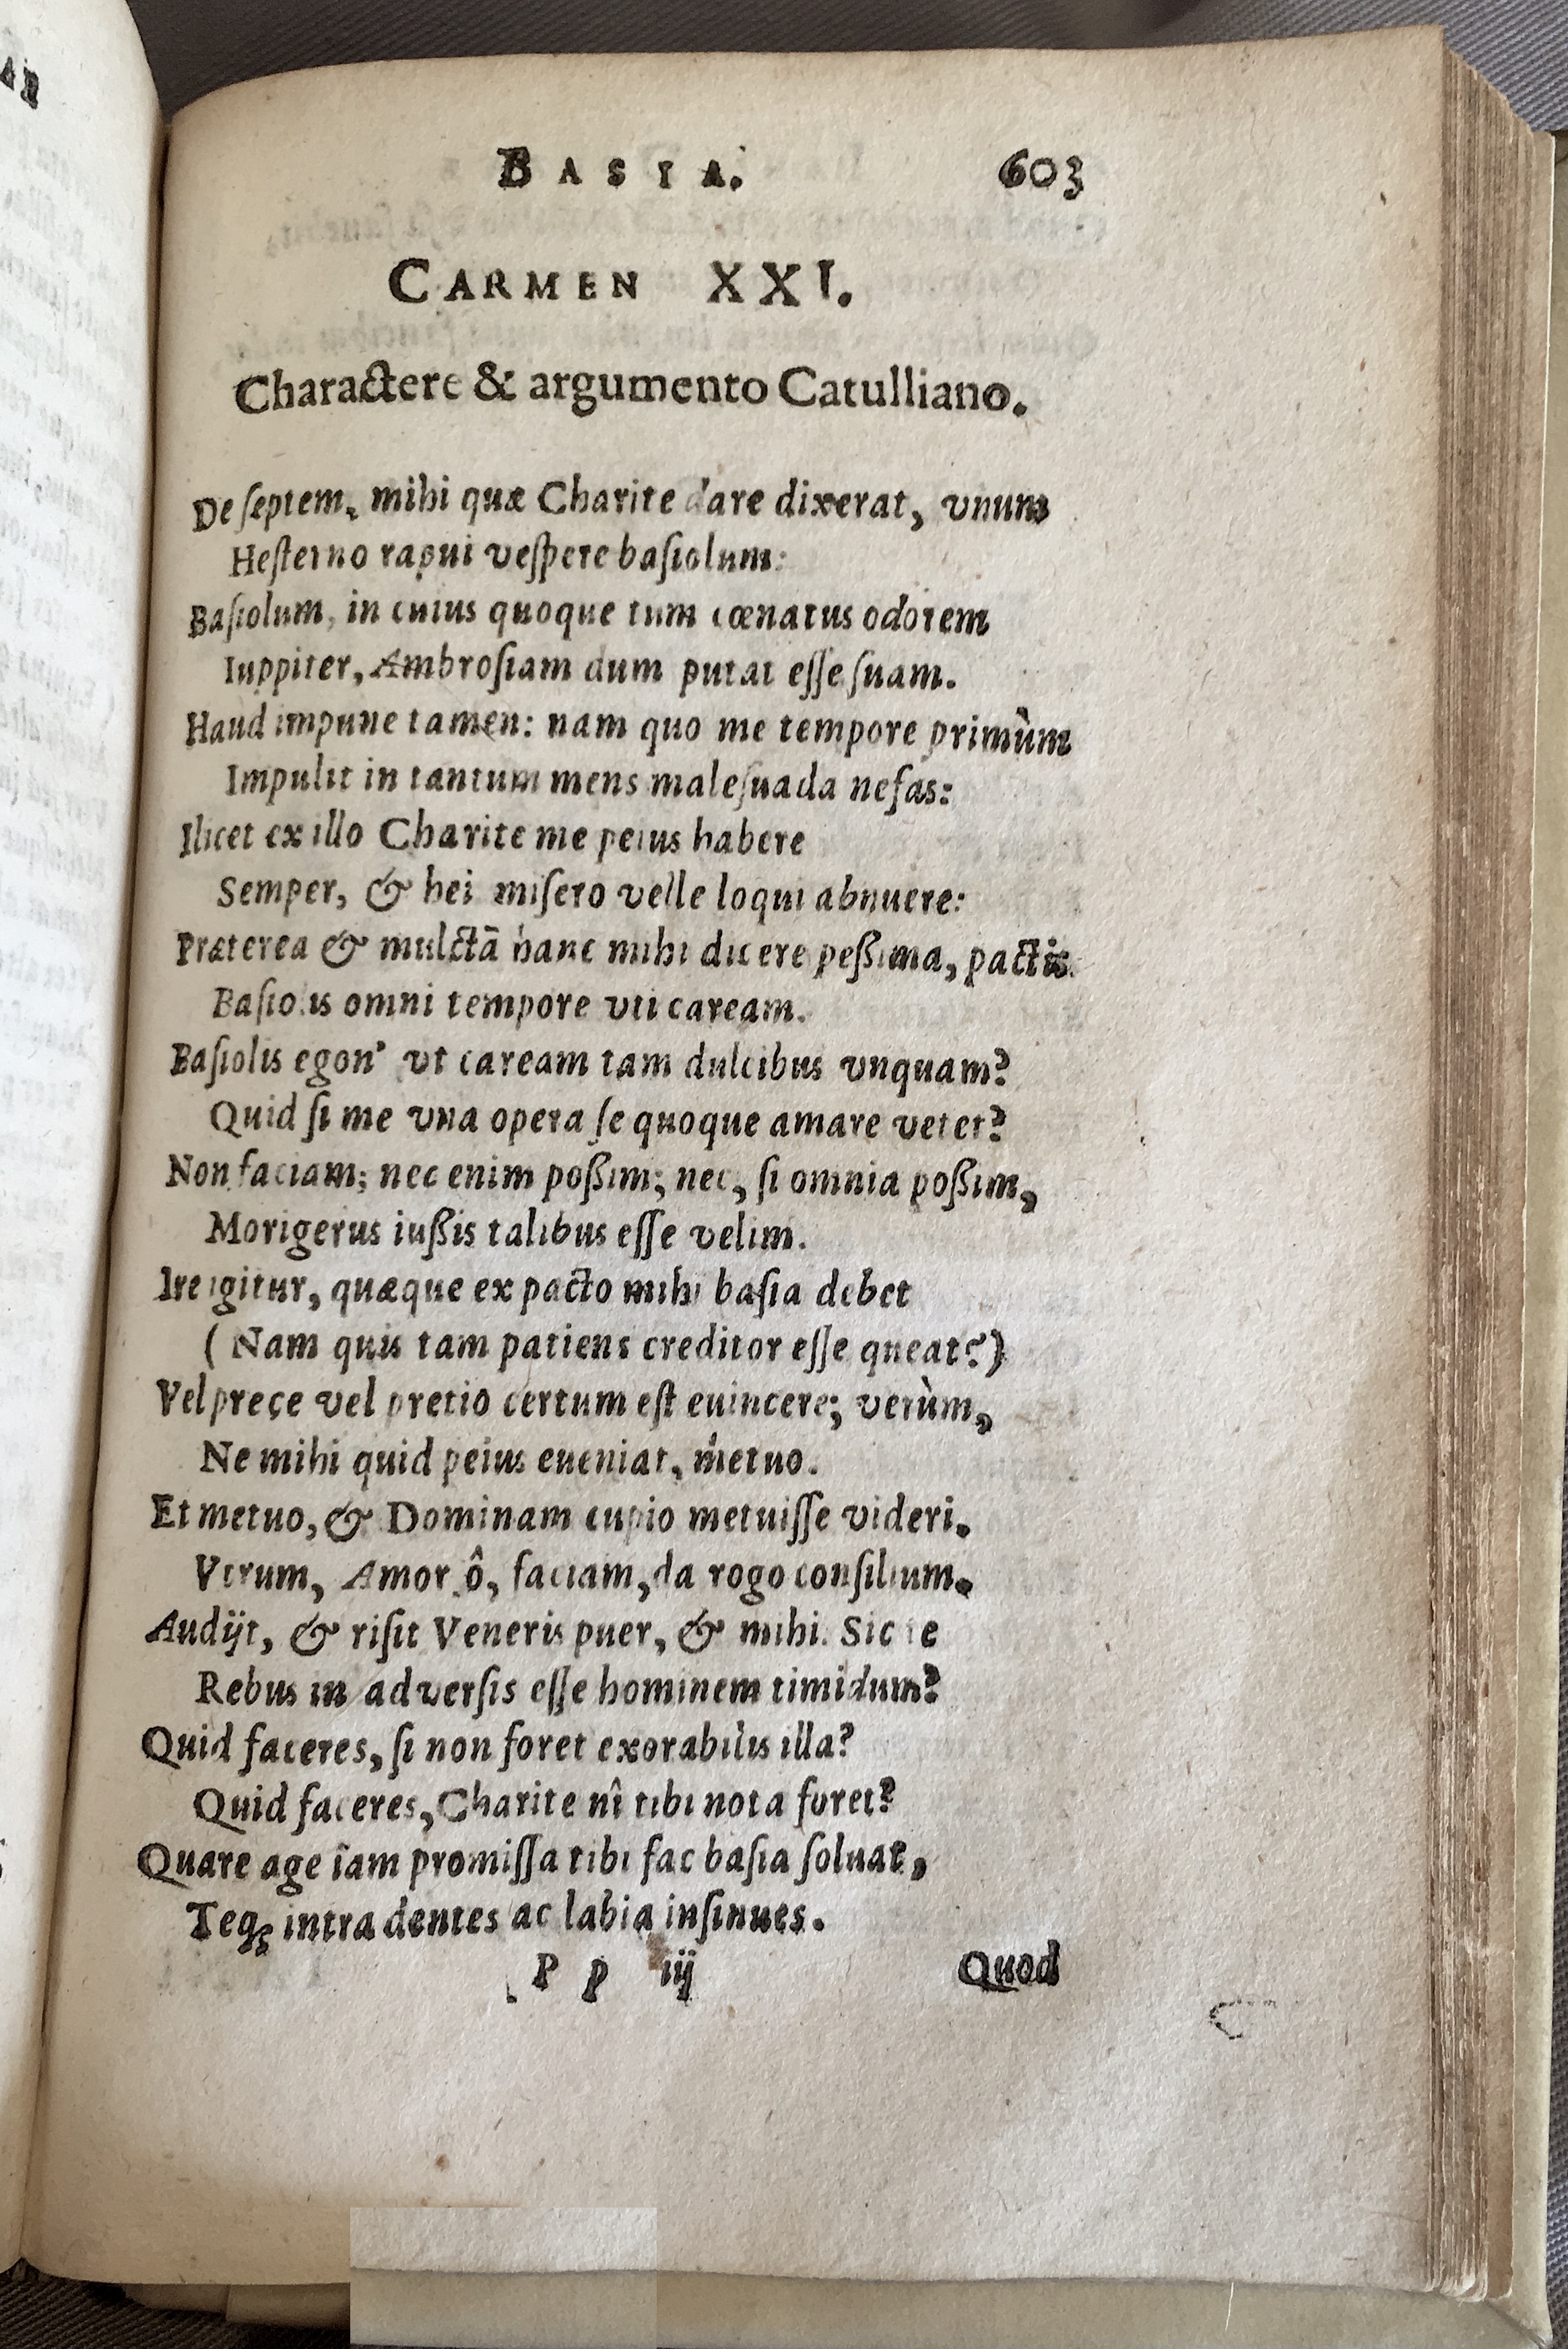 BASIA. 603
CARMEN XXI.
Charactere & argumento Catulliano.
De ſeptem, mihi quæ Charite dare dixerat, vnum
Heſterno rapui veſpere baſiolum:
Baſiolum, in cuius quoque tum cœnatus odorem
Iuppiter, Ambroſiam dum putat eſſe ſuam.
Haud impune tamen: nam quo me tempore primùm
Impulit in tantum mens maleſuada nefas:
Ilicet ex illo Charite me peius habere
Semper, & hei miſero velle loqui abnuere:
Præterea & mulctā hanc mihi dicere peßima, pactis
Baſiolis omni tempore vti caream.
Baſiolis egon' vt caream tam dulcibus vnquam?
Quid ſi me vna opera ſe quoque amare vetet?
Non faciam; nec enim poßim; nec, ſi omnia poßim,
Morigerus iußis talibus eſſe velim.
Ire igitur, quæque ex pacto mihi baſia debet
(Nam quis tam patiens creditor eſſe queat?)
Vel prece vel pretio certum eſt euincere; verùm,
Ne mihi quid peius eueniat, metuo.
Et metuo, & Dominam cupio metuiſſe videri.
Vtrum, Amor ô, faciam, da rogo conſilium.
Audijt, & riſit Veneris puer, & mihi. Sic te
Rebus in adverſis eſſe hominem timidum?
Quid faceres, ſi non foret exorabilis illa?
Quid faceres, Charite nî tibi nota foret?
Quare age iam promiſſa tibi fac baſia ſoluat,
Teq; intra dentes ac labia inſinues.
P p iij Quod